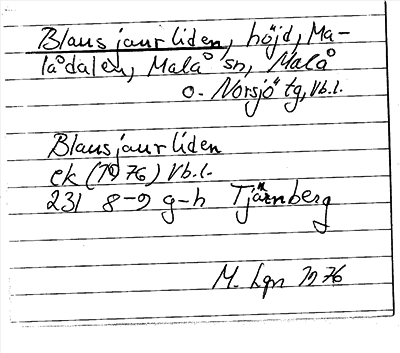 Blausjaurliden, höjd, Ma-
lådalen, Malå sn, Malå
o. Norsjö tg, Vb.l.
Blausjaurliden
ek (1976) Vb.l.
231 8-9 g-h Tjärnberg
M. Lgn 1976